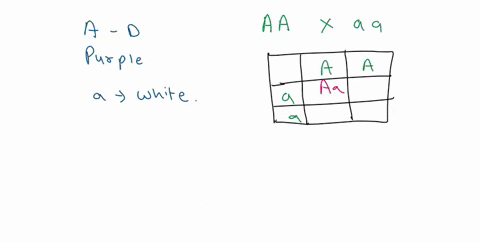 A - D
Purple
a → white.
AA x aa
A A
a Aa
a